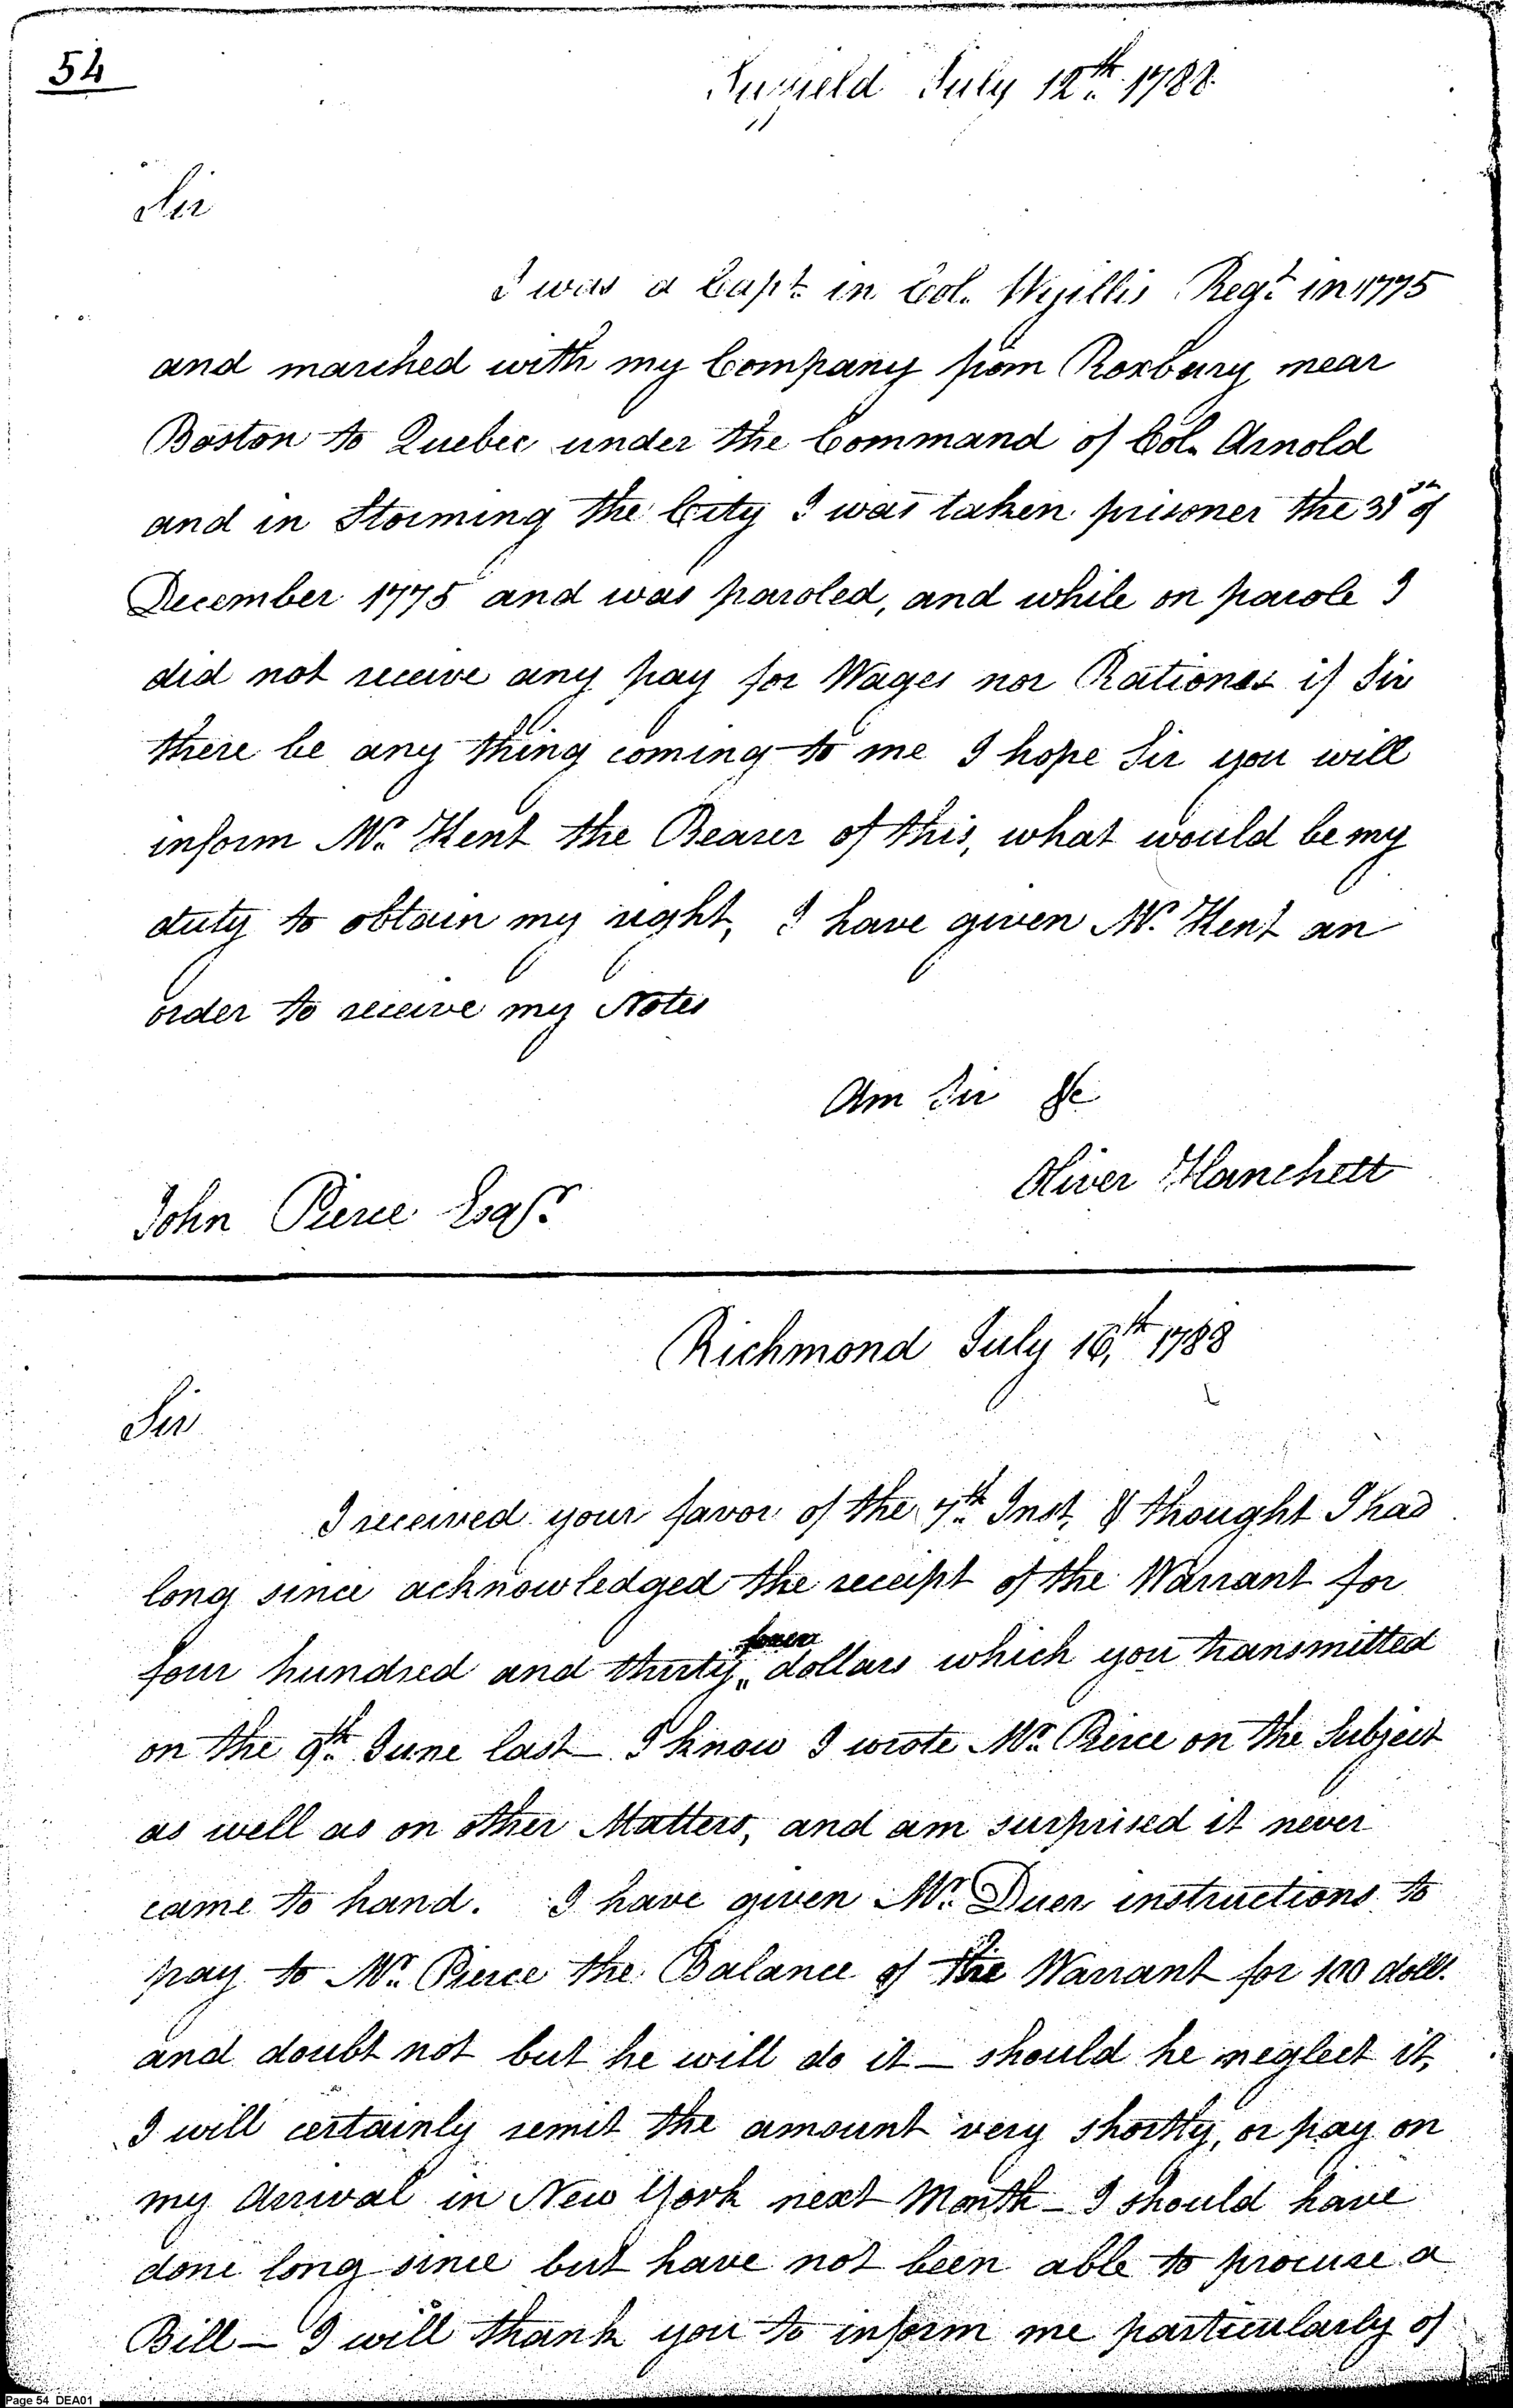 54
Suffield July 12th. 1788.
Sir
I was a Capt. in Col. Wyillis Regt. in 1775
and marched with my Company from Roxbury near
Boston to Quebec under the Command of Col. Arnold
and in Storming the City I was taken prisoner the 31st of
December 1775 and was paroled, and while on parole I
did not receive any pay for Wages nor Rations if Sir
there be any thing coming to me I hope Sir you will
inform Mr. Kent the Bearer of this, what would be my
duty to obtain my right, I have given Mr. Kent an
order to receive my Notes
Am Sir &c
Oliver Hanchett
John Pierce Esqr.
Richmond July 16,th 1788
Sir
I received your favor of the 7th. Inst, & thought I had
long since acknowledged the receipt of the Warrant for
four hundred and thirty,, dollars which you transmitted
on the 9th. June last – I know I wrote Mr. Pierce on the Subject
as well as on other Matters, and am surprised it never
came to hand. I have given Mr. Duer instructions to
pay to Mr. Pierce the Balance of the Warrant for 100 dolls.
and doubt not but he will do it – should he neglect it,
I will certainly remit the amount very shortly, or pay on
my Arrival in New York next Month – I should have
done long since but have not been able to procure a
Bill – I will thank you to inform me particularly of
Page 54 DEA01